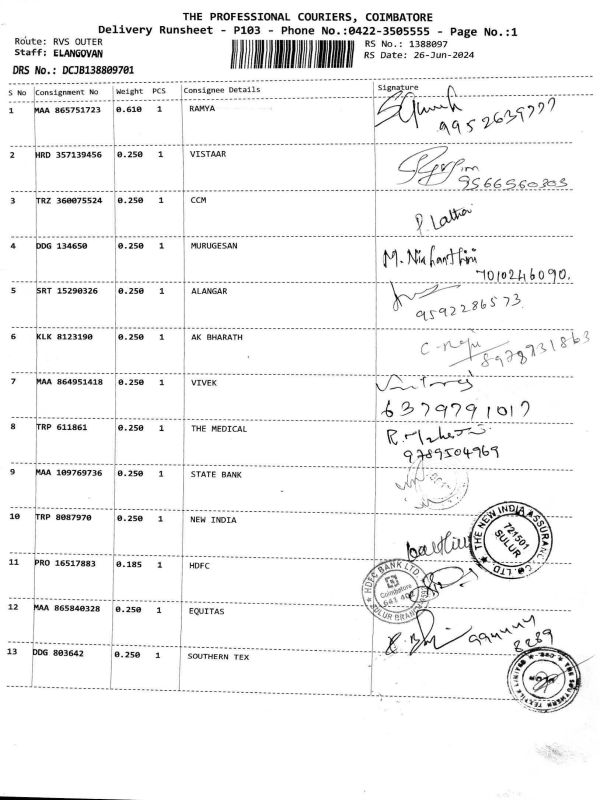 THE PROFESSIONAL COURIERS, COIMBATORE
Delivery Runsheet - P103 - Phone No.:0422-3505555 - Page No.:1
Route: RVS OUTER
RS No.: 1388097
Staff: ELANGOVAN
RS Date: 26-Jun-2024
DRS No.: DCJB138809701
S No Consignment No Weight PCS Consignee Details Signature
1 MAA 865751723 0.610 1 RAMYA
9952639777
2 HRD 357139456 0.250 1 VISTAAR
9566560303
3 TRZ 360075524 0.250 1 CCM P. Latha
4 DDG 134650 0.250 1 MURUGESAN M. Nishanthini
7010246090.
5 SRT 15290326 0.250 1 ALANGAR
9592286573
6 KLK 8123190 0.250 1 AK BHARATH C. Raju
8978731863
7 MAA 864951418 0.250 1 VIVEK
6379791017
8 TRP 611861 0.250 1 THE MEDICAL
9789504969
9 MAA 109769736 0.250 1 STATE BANK
10 TRP 8087970 0.250 1 NEW INDIA
THE NEW INDIA ASSURANCE CO. LTD.
721501
SULUR
11 PRO 16517883 0.185 1 HDFC
HDFC BANK LTD.
Coimbatore
641 402
SULUR BRANCH
12 MAA 865840328 0.250 1 EQUITAS
8289
13 DDG 803642 0.250 1 SOUTHERN TEX